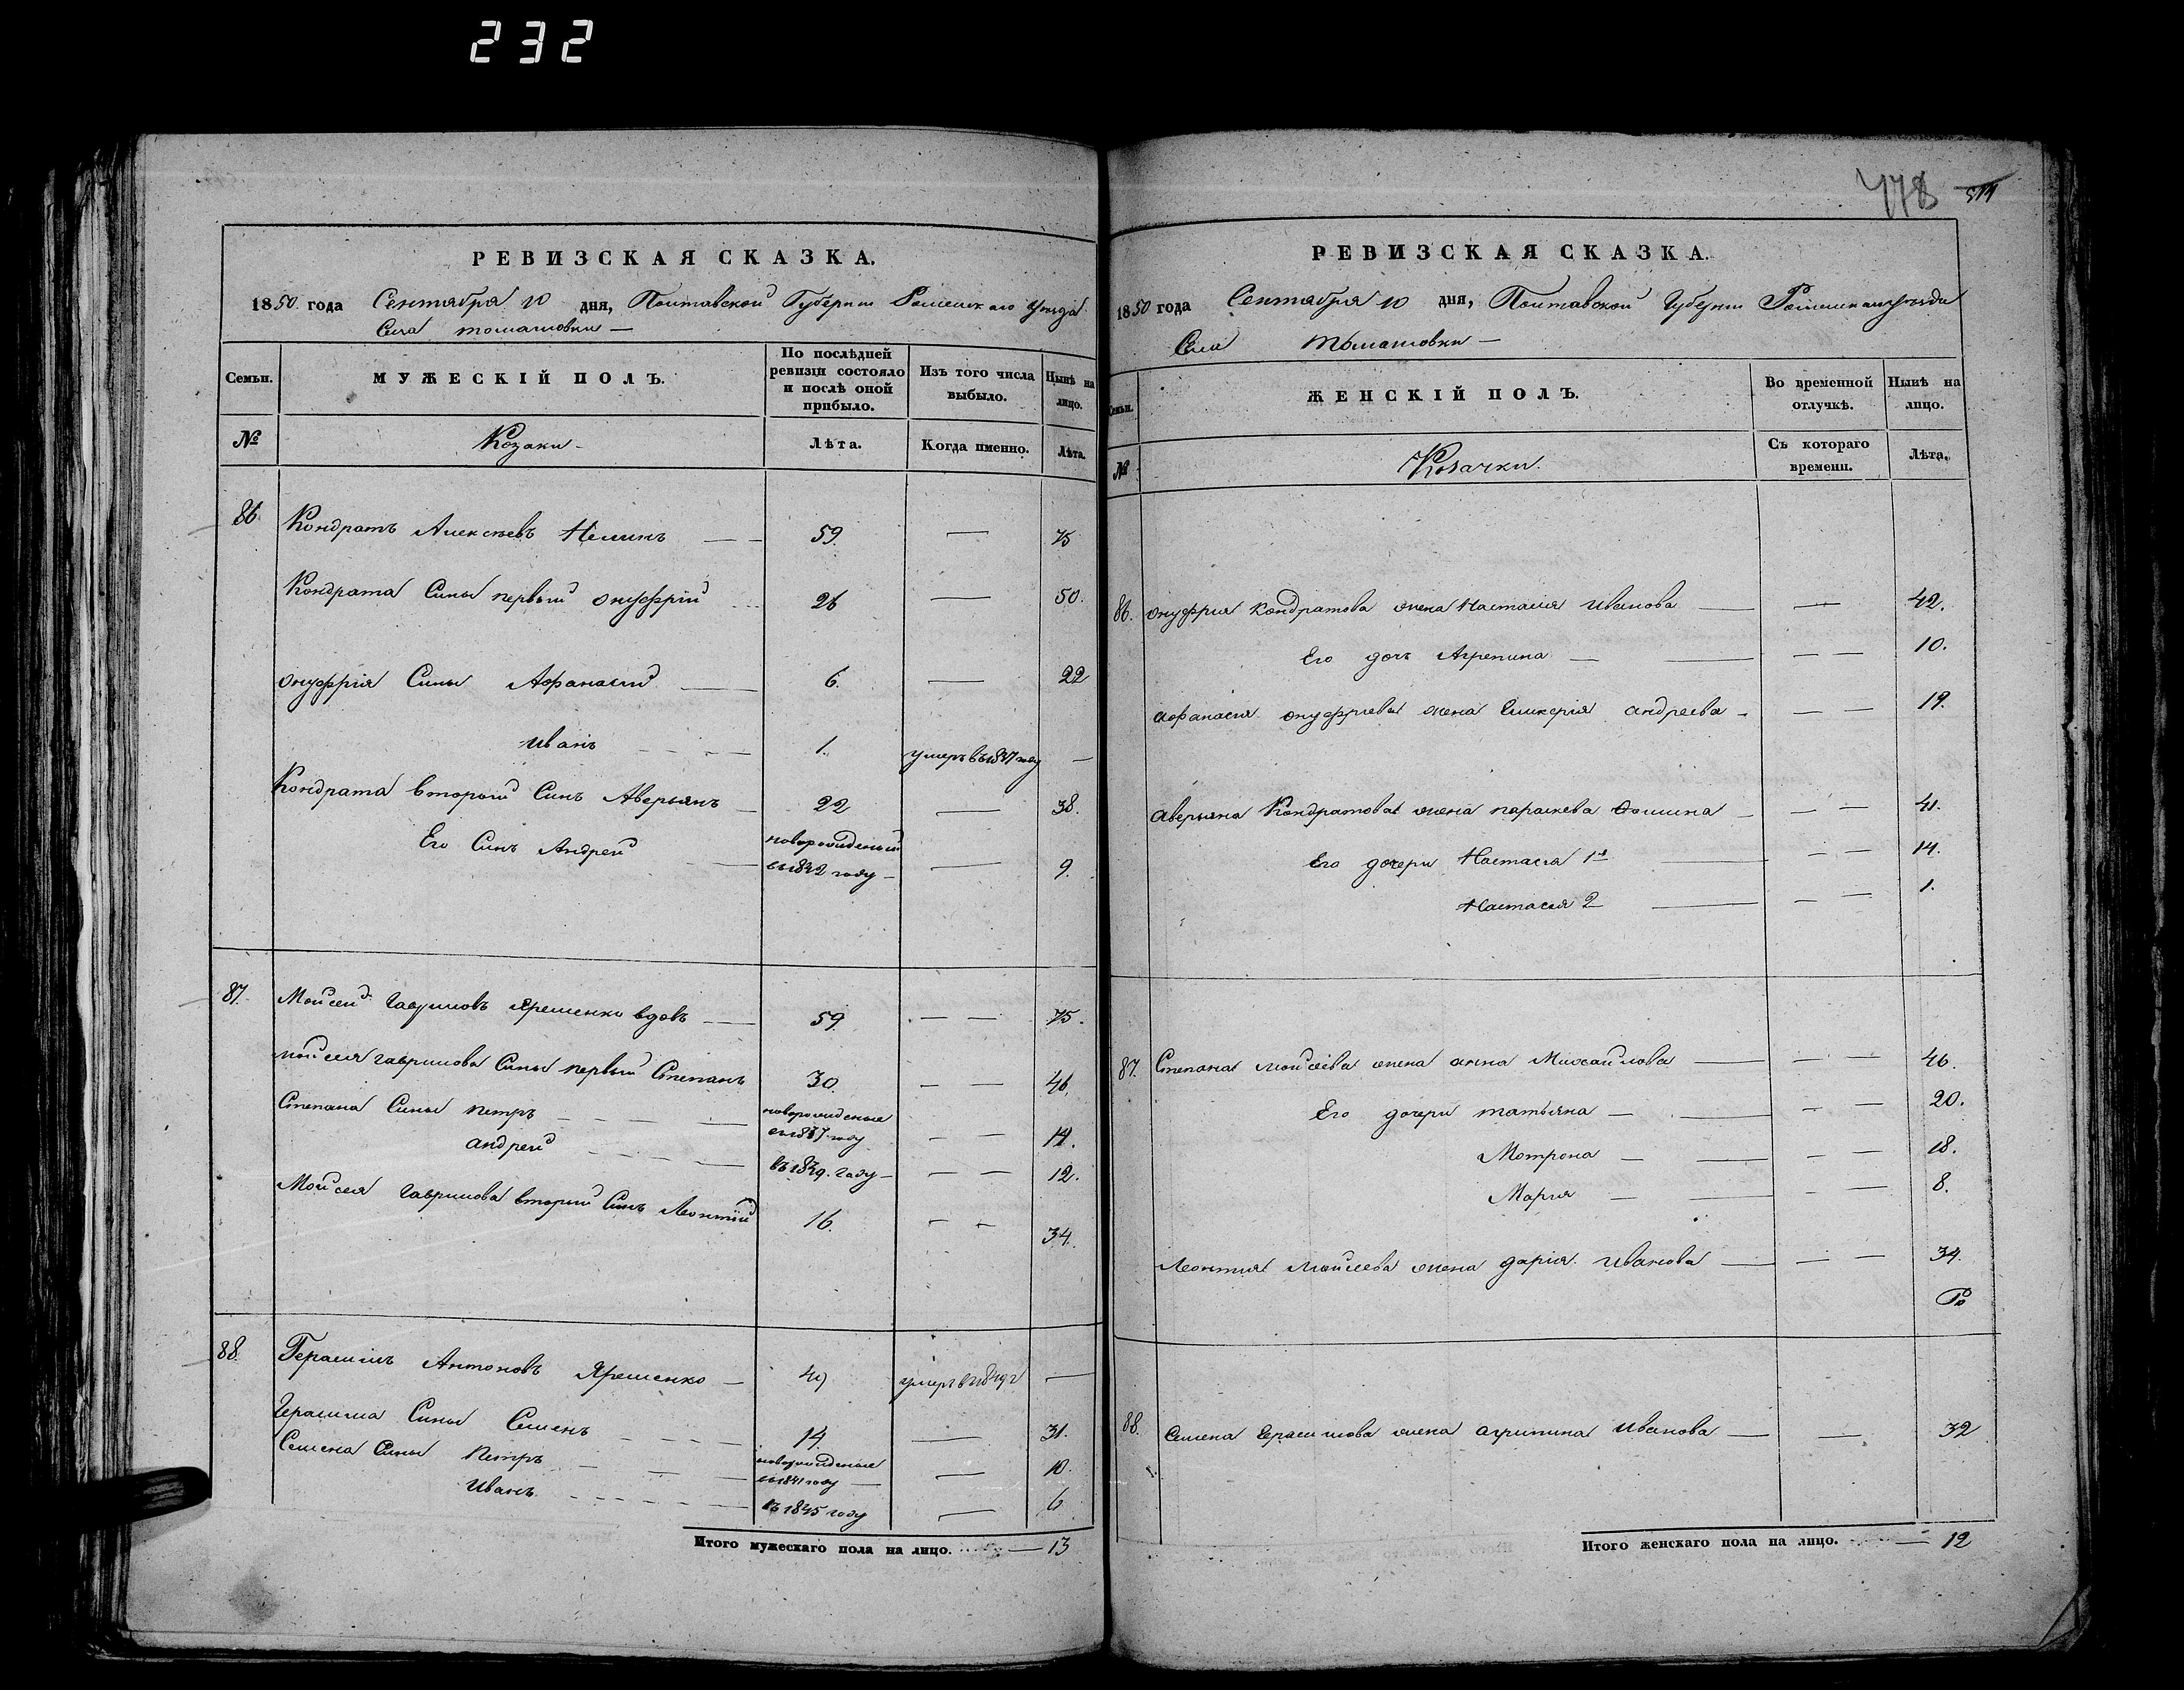 232
РЕВИЗСКАЯ СКАЗКА.
1850 года Сентября 10 дня, Полтавской Губернии Роменского Уезда
Села томашовки —
Семьи.
МУЖЕСКІЙ ПОЛЪ.
По послѣдней ревизіи состояло и послѣ оной прибыло.
Изъ того числа выбыло.
Нынѣ на лицо.
№
Козаки
Лѣта.
Когда именно.
Лѣта.
86. Кондратъ Алексѣевъ Нелинъ — 59. — 75
Кондрата Сины первый онуфрій 26 — 50.
онуфрія Сины Афанасий — 6. — 22
иванъ 1. умеръ въ 1847 году —
Кондрата вторый Синъ Аверьянъ — 22 — 38.
Его Синъ Андрей — новорожденый
въ 1842 году — 9.
87. Мойсей Гавриловъ Яременко вдовъ — 59. — 75.
Мойсея гаврилова Сины первый Степанъ 30. — 46.
Степана Сины петръ новорожденые
въ 1837 году — 14.
андрей въ 1839. году — 12.
Мойсея гаврилова вторий Синъ Леонтий 16. — 34.
88. Герасимъ Антоновъ Яременко — 49 умеръ в 1849 г —
Герасима Сины Семенъ 14. — 31.
Семена Сины петръ новорожденые
въ 1841 году — 10.
иванъ въ 1845 году — 6
Итого мужескаго пола на лицо. — 13
778 514
РЕВИЗСКАЯ СКАЗКА.
1850 года Сентября 10 дня, Полтавской Губернии Роменского уезда
Села Томашовки —
Семьи.
ЖЕНСКІЙ ПОЛЪ.
Во временной отлучкѣ.
Нынѣ на лицо.
№
Козачки.
Съ котораго времени.
Лѣта.
86. онуфрия Кондратова жена Настасия иванова — 42.
Его дочь Агрепина — 10.
афанасия онуфриева жена Гликерия андреева — 19.
аверьяна Кондратова жена параскева Фомина — 41.
Его дочери Настасия 1я — 14.
Настасия 2 — 1.
87. Степана мойсеева жена анна Михайлова — 46.
Его дочери татьяна — 20.
Мотрона — 18.
Мария — 8.
Леонтия Мойсеева жена дария иванова — 34.
88. Семена Герасимова жена агрипина иванова — 32
Итого женскаго пола на лицо. — 12